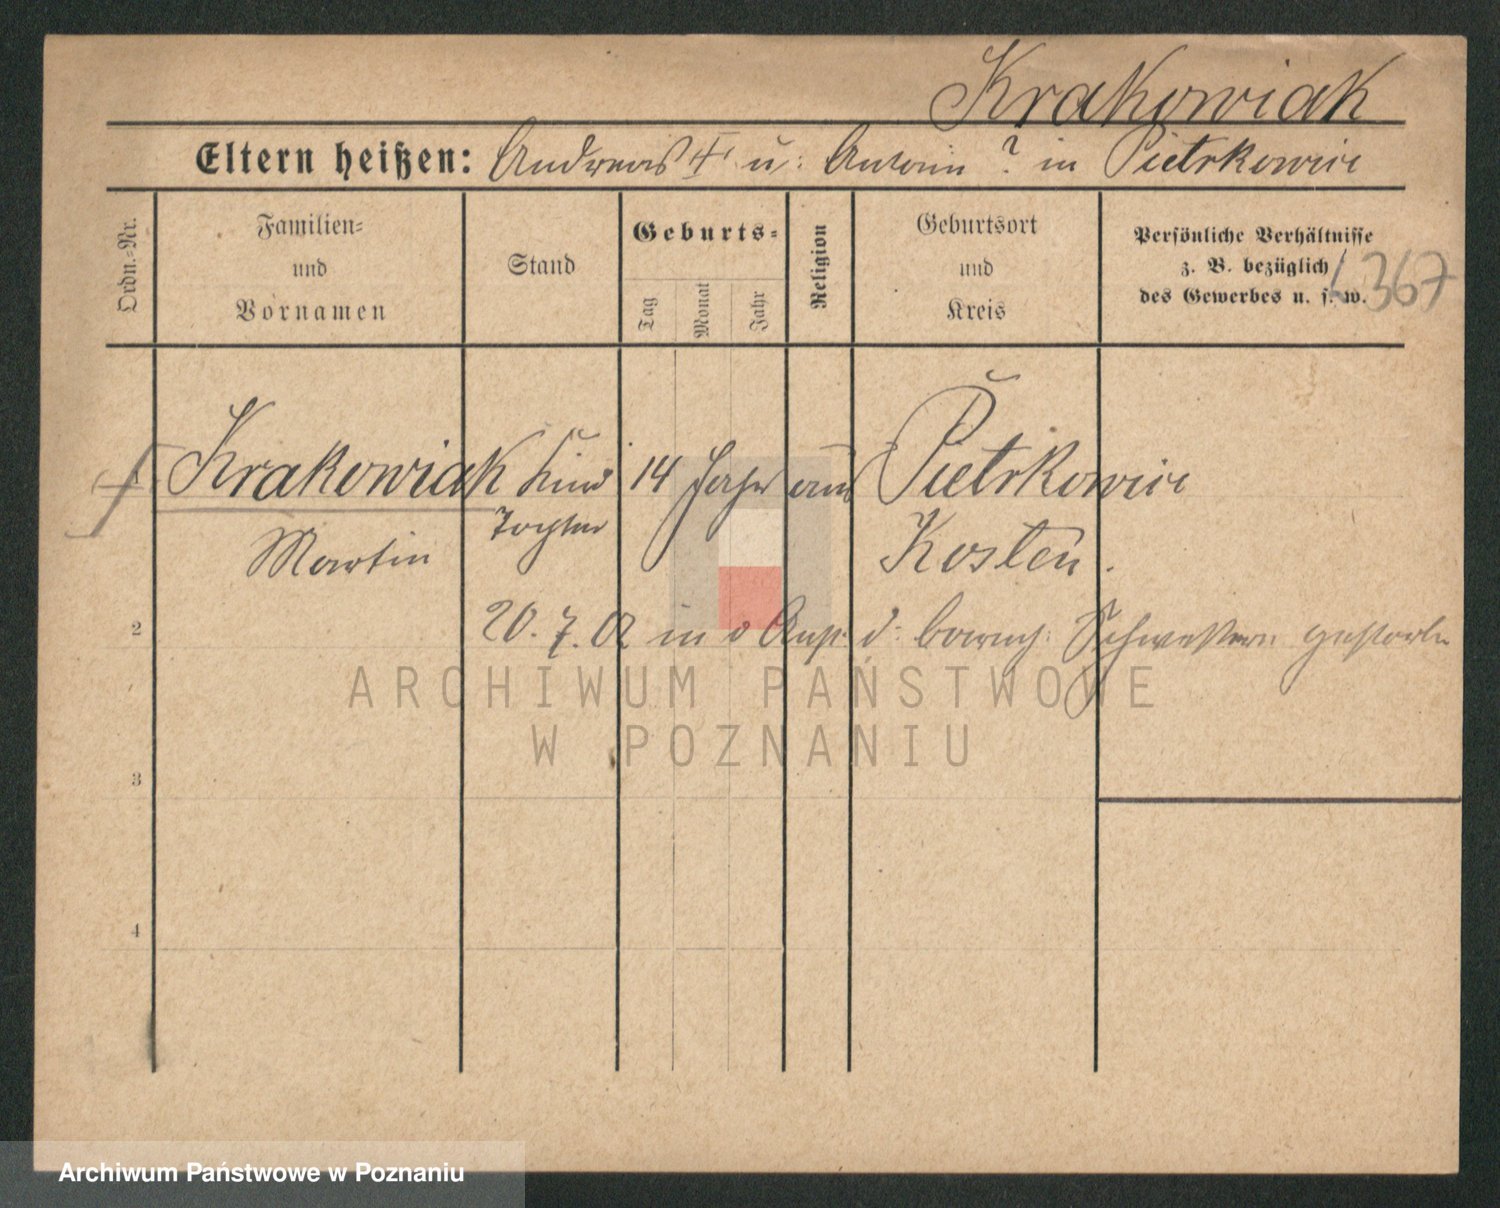 Krakowiak
Eltern heißen: Andreas † u: Antonin ? in Pietrkowice
Ordn.-Nr.
Familien-
und
Vornamen
Stand
Geburts-
Tag
Monat
Jahr
Religion
Geburtsort
und
Kreis
Persönliche Verhältnisse
z. B. bezüglich
des Gewerbes u. s. w.
367
† Krakowiak Kind 14 Jahr aus Pietrkowice
Martin Kosten.
2
20. 7. 02 in d d: barmh: Schwestern gestorben
ARCHIWUM PAŃSTWOWE
W POZNANIU
3
4
Archiwum Państwowe w Poznaniu